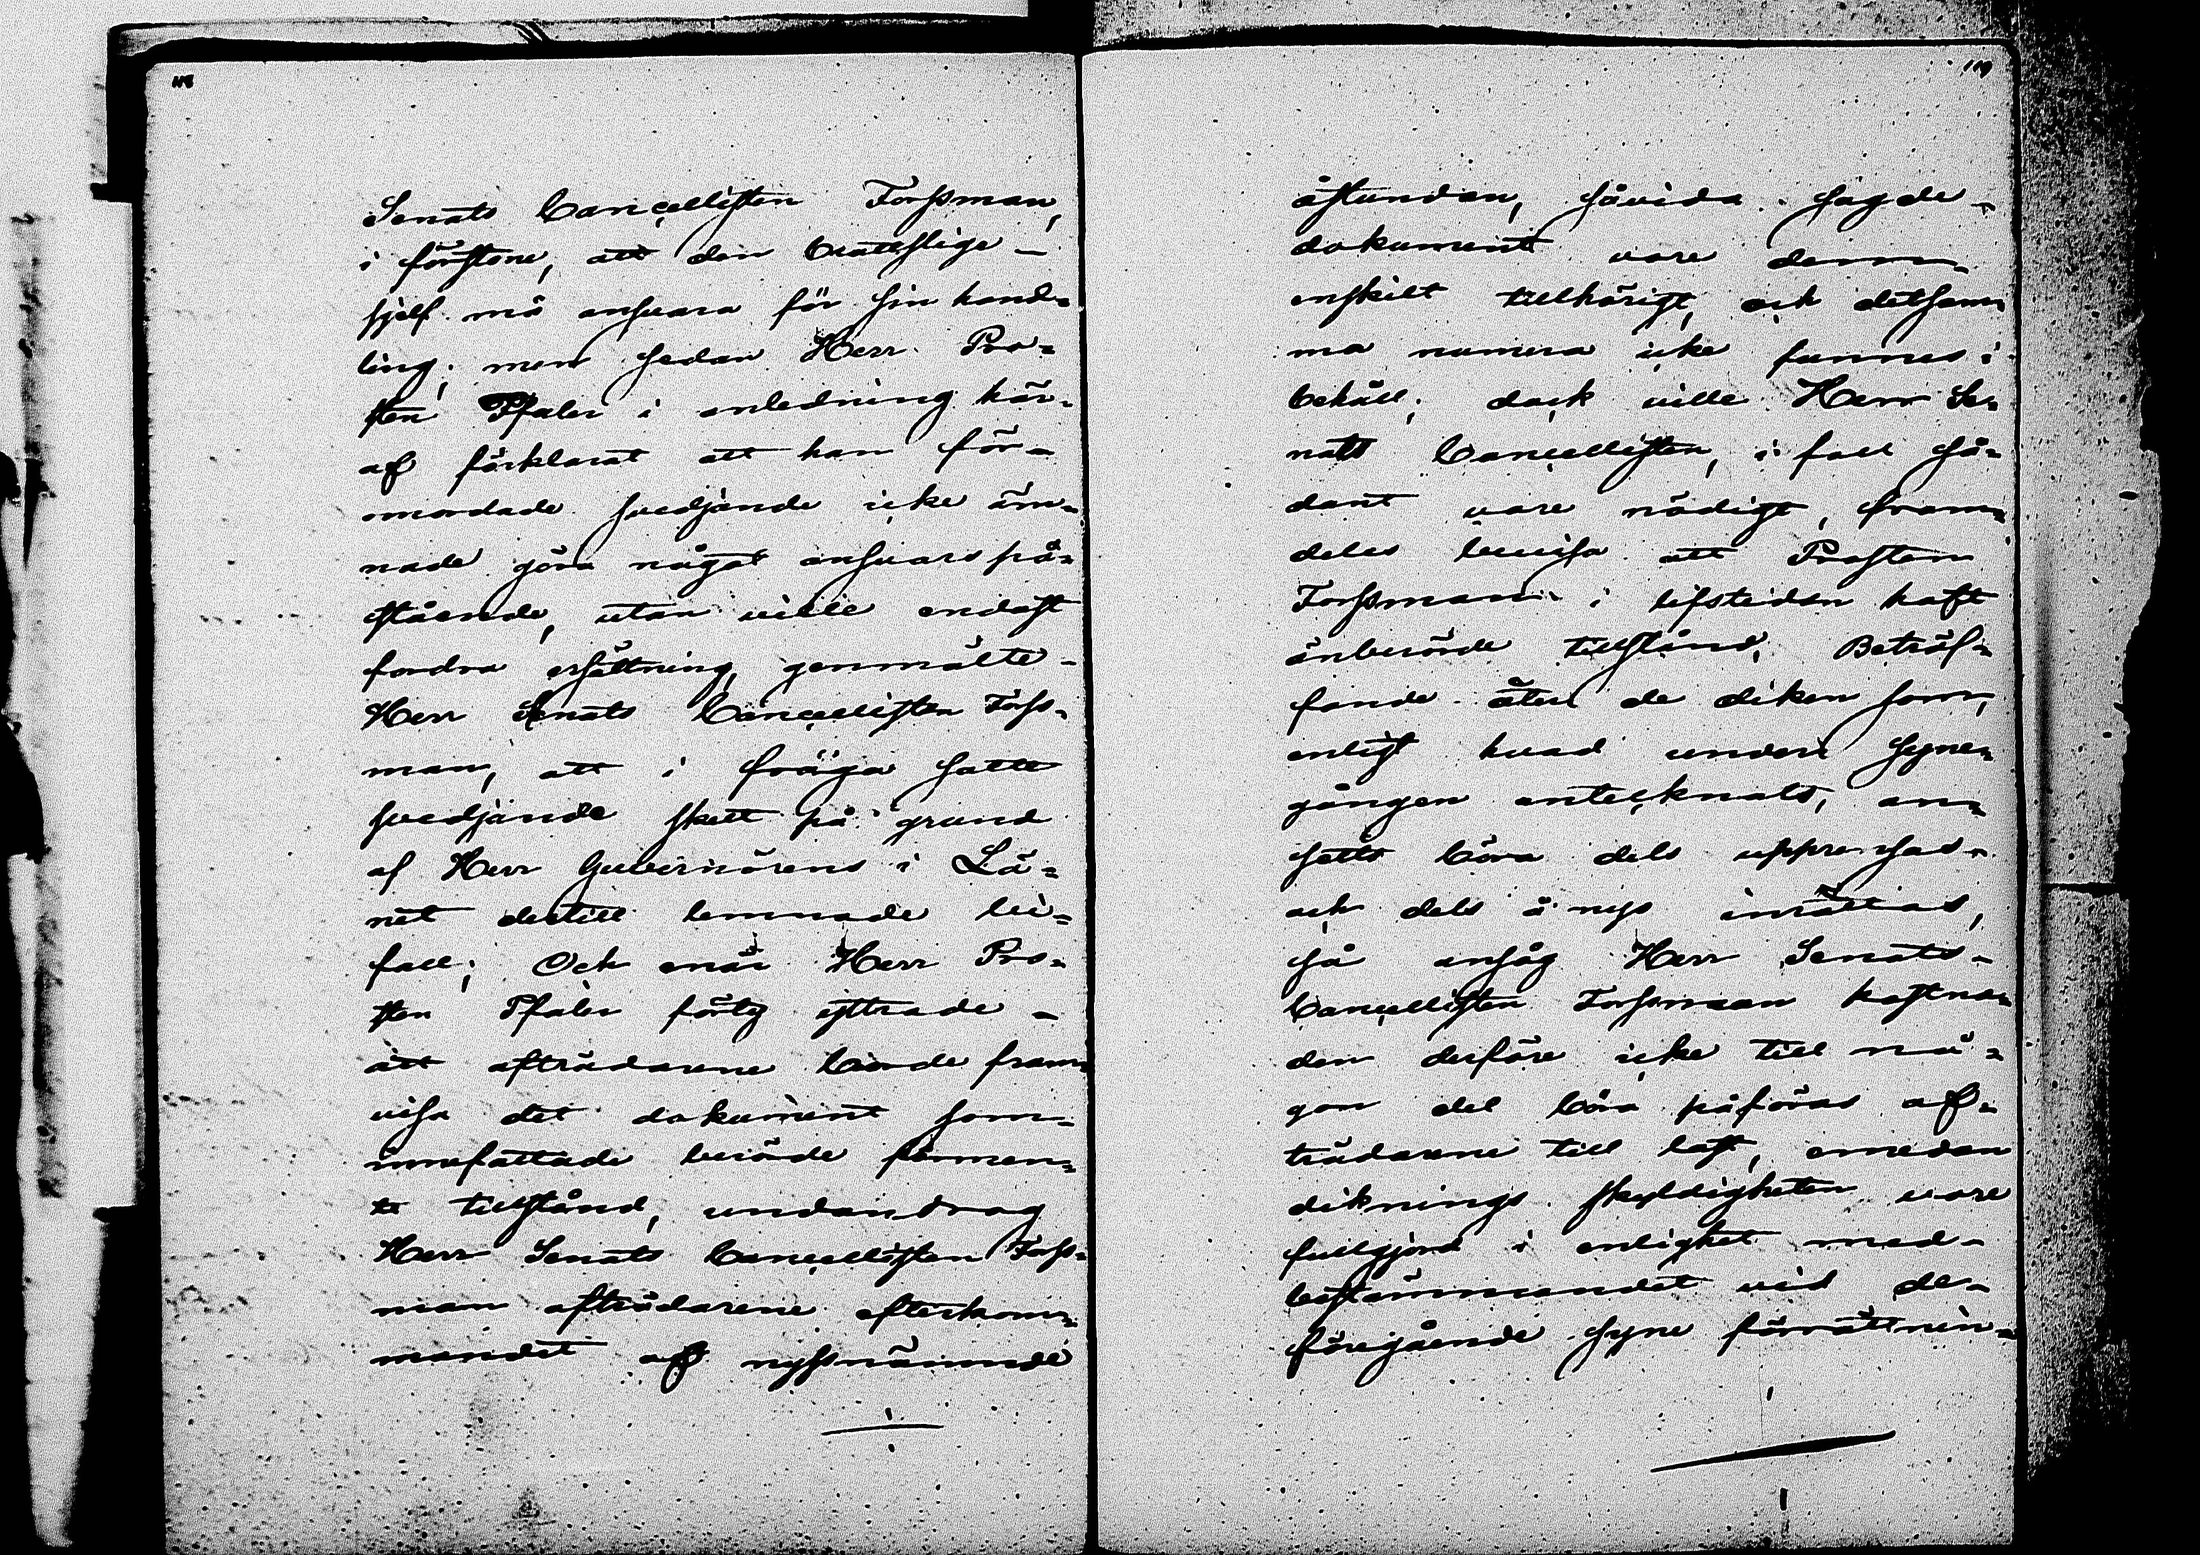 118
Senats Cancellisten Forssman,
i förstone, att den brottslige
sjelf må ansvara för sin hand-
ling; men sedan Herr Pro-
sten Pfaler i anledning här-
af förklarat att han för-
omordade svedjande icke äm-
nade göra något ansvars på-
stående, utan ville endast
fordra ersättning, genmälte
Herr Senats Cancellisten Forss-
man, att i fråga satte
svedjande skett på grund
af Herr Gubernörens i Lä-
net dertill lemnade bi-
fall; Och enär Herr Pro-
sten Pfaler förty yttrade
att afträdarene borde fram-
visa det dokument som
innefattade berörde förmen-
te tillstånd, undandrog
Herr Senats Cancellisten Forss-
man afträdarene efterkom-
mandet af nyssnämnde
119
åstundan, såvida sagde
dokument vore denne
enskilt tillhörigt, och detsam-
ma numera icke funnes i
behåll; dock ville Herr Se-
nats Cancellisten, i fall så-
dant vore nödigt, fram-
deles bevisa att Prosten
Forssman i lifstiden haft
änberörde tillstånd. Beträf-
fande åter de diken som,
enligt hvad under syne-
gången antecknats, an-
setts böra dels upprensas
och dels å nyo inrättas,
så ansåg Herr Senats-
Cancellisten Forssman kostna-
den derföre icke till nå-
gon del böra påföras af-
trädarene till last, emedan
diknings skyldigheten vore
fullgjord i enlighet med
bestämmandet vid de
föregående syne förrättnin-